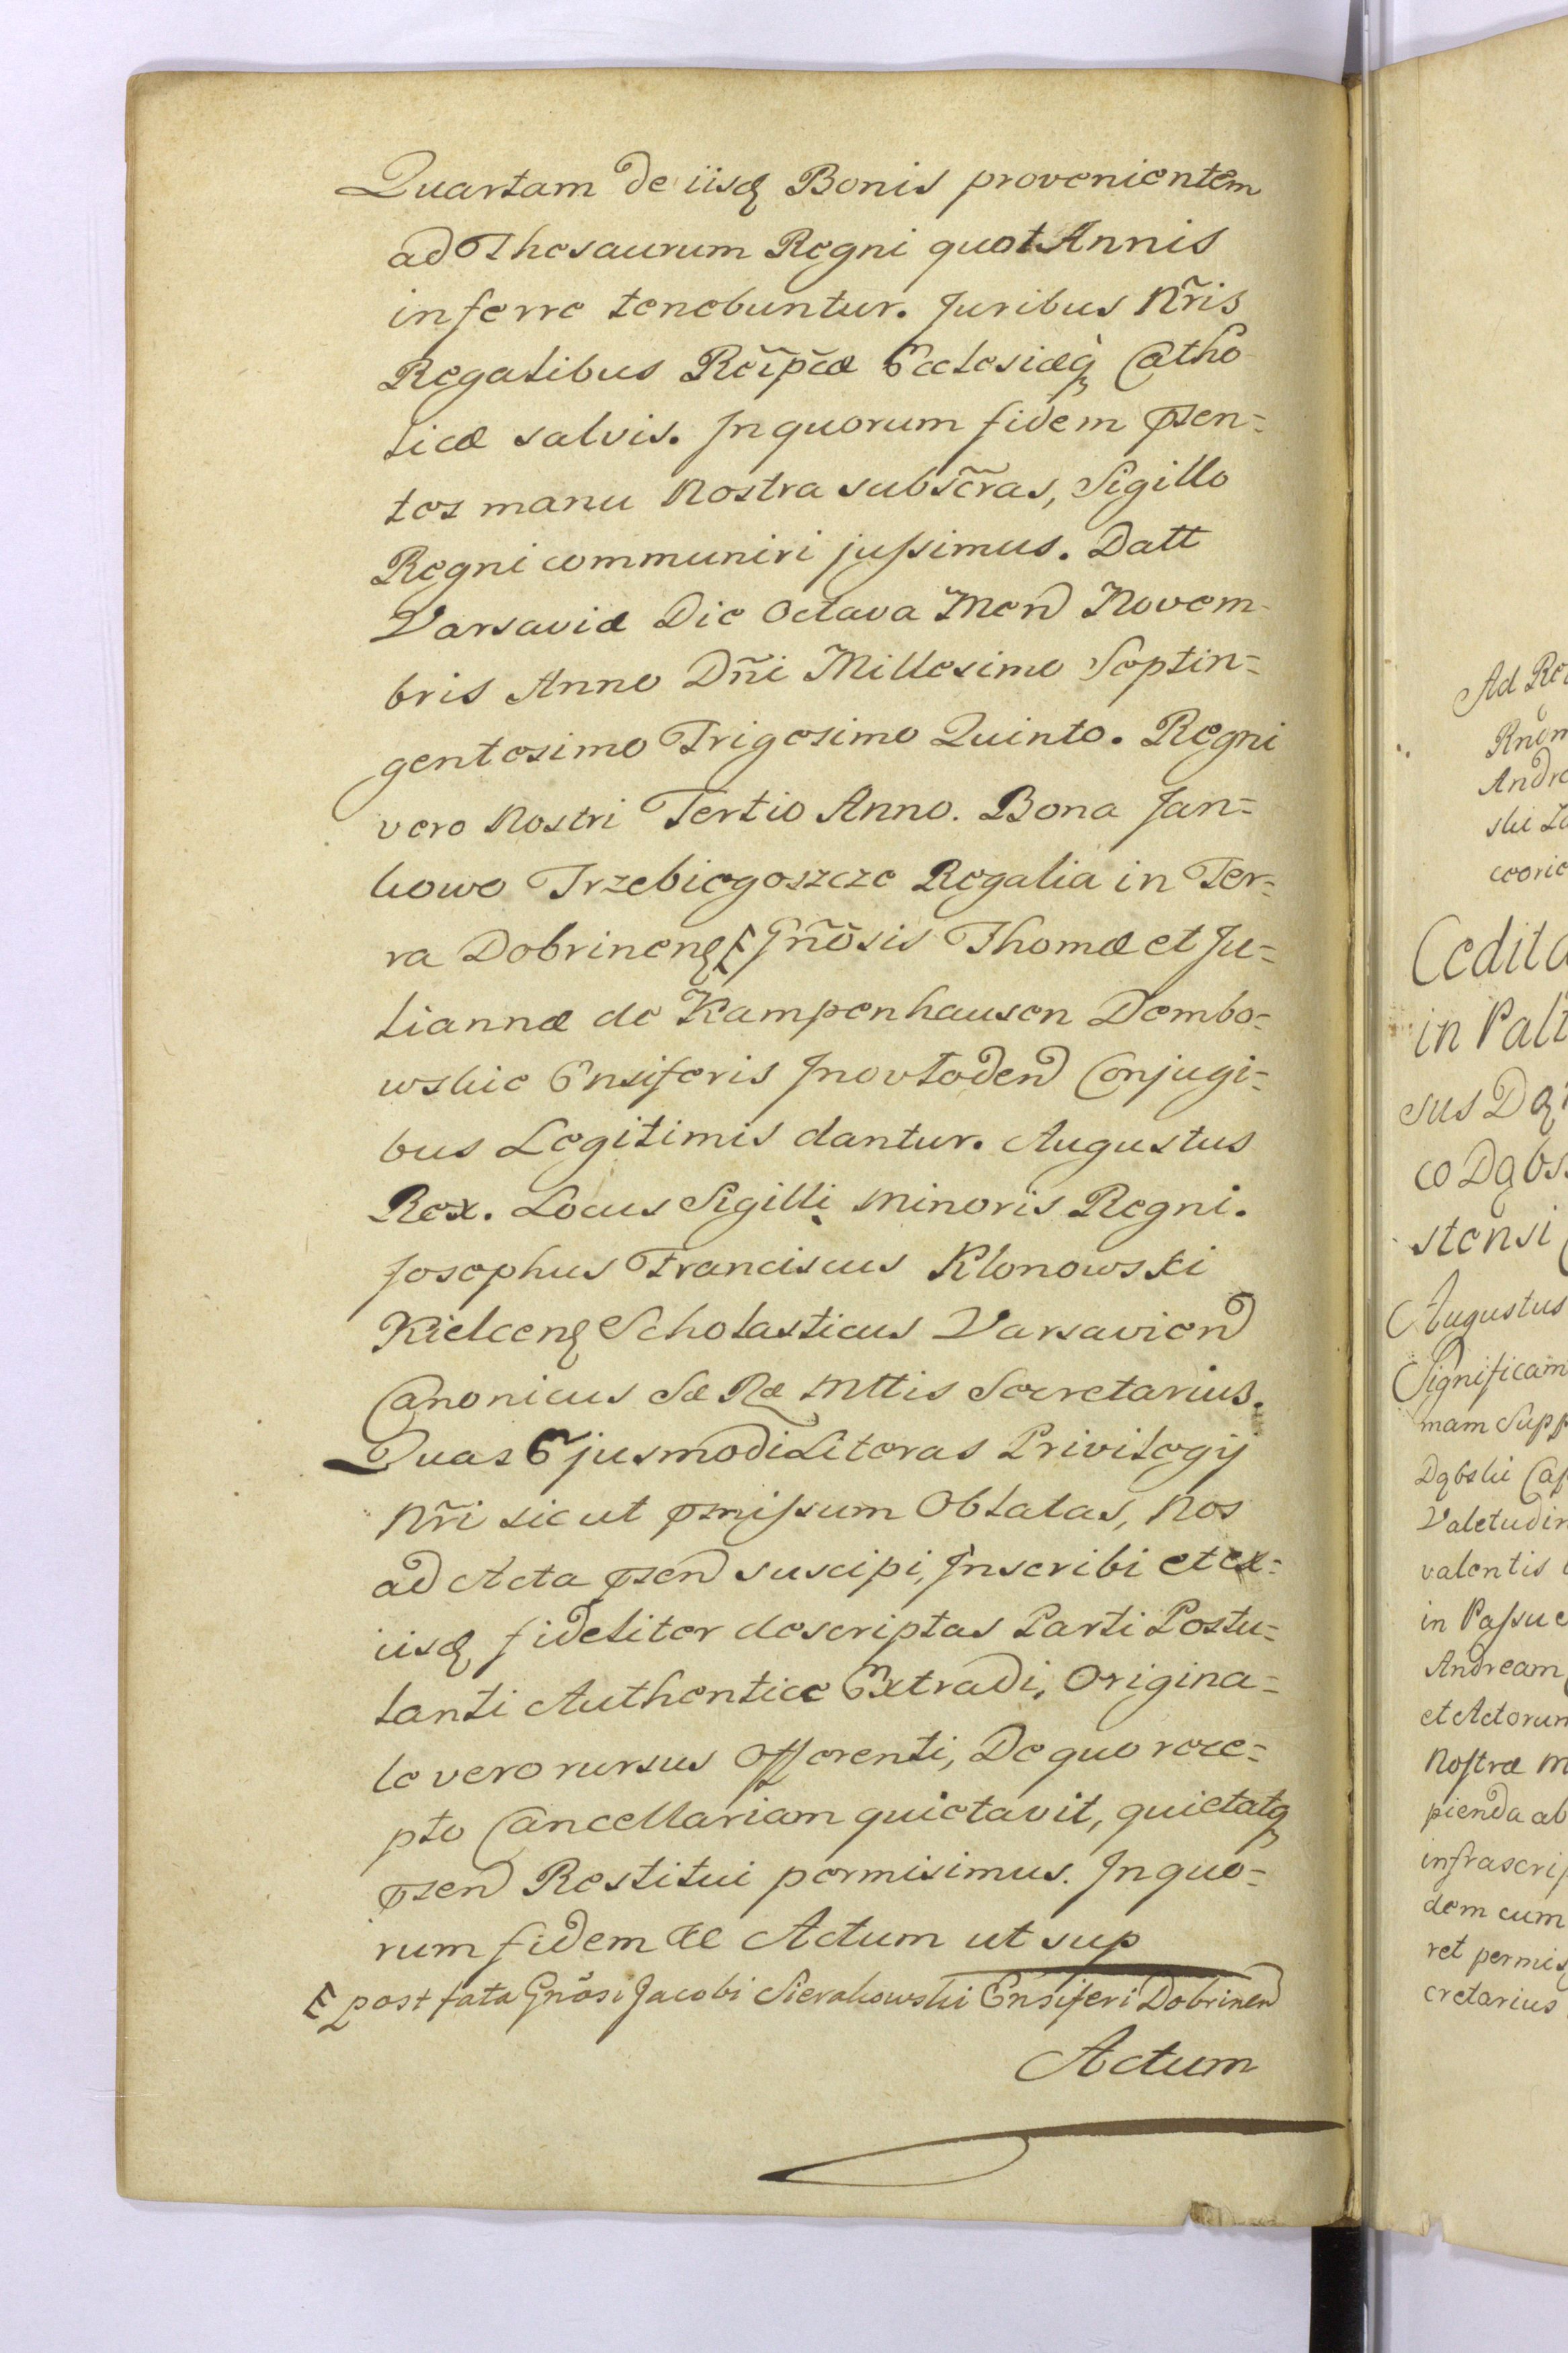 Quartam de iisq Bonis provenientem
ad Thesaurum Regni quot Annis
inferre tenebuntur. Juribus Nr̃is
Regalibus Rei͠p͠cæ Ecclesiæq Catho
licæ salvis. In quorum fidem p̃sen=
tes manu Nostra subsc̃ras, Sigillo
Regni communiri jussimus. Datt
Varsaviæ Die Octava Men Novem-
bris Anno Dñi Millesimo Septin=
gentesimo Trigesimo Quinto. Regni
vero Nostri Tertio Anno. Bona Jan=
kowo Trzebiegoszcze Regalia in Ter=
ra Dobrinen E Gñosis Thomæ et Ju=
liannæ de Kampenhausen Dembo=
wskie Ensiferis Inovloden Conjugi=
bus Legitimis dantur. Augustus
Rex. Locus Sigilli Minoris Regni.
Josephus Franciscus Klonowski
Kielcen Scholasticus Varsavien
Canonicus Sæ Ræ Mttis Secretarius.
Quas Ejusmodi Literas Privilegij
Nr̃i sicut p̃missum Oblatas, Nos
ad Acta p̃sen suscipi, Inscribi et ex=
iisq fideliter descriptas Parti Postu=
lanti Authentice Extradi, Origina=
le vero rursus Offerenti, De quo rece=
pto Cancellariam quietavit, quietatq
p̃sen Restitui permisimus. In quo=
rum fidem &c Actum ut sup
E post fata Gñosi Jacobi Sierakowski Ensiferi Dobrinen
Actum
Ad
Andre
ski
Cedit
in Palt
sus
stensi
Augustus
Significam
mam Supp
Dąbski Cap
Valetudin
valentis
in Passu
Andream
et Actorum
Nostræ M
pienda ab
infrascrip
dem cum
ret permis
cretarius